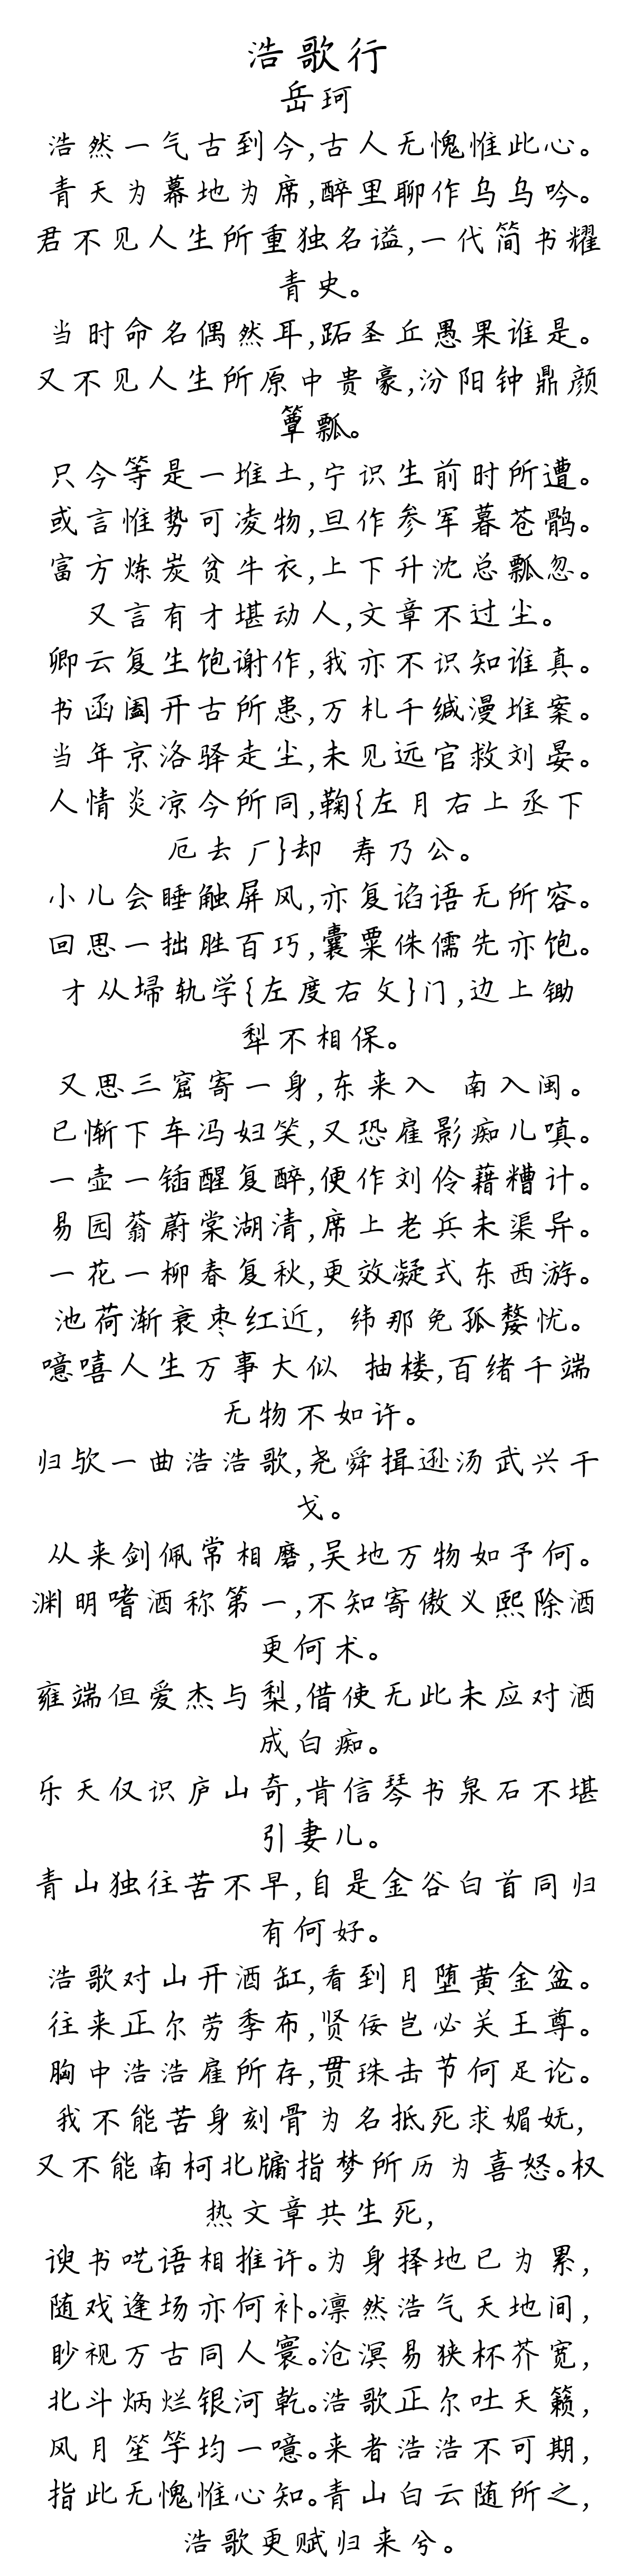 浩歌行
岳珂
浩然一气古到今,古人无愧惟此心。
青天为幕地为席,醉里聊作乌乌吟。
君不见人生所重独名谥,一代简书耀
青史。
当时命名偶然耳,跖圣丘愚果谁是。
又不见人生所原中贵豪,汾阳钟鼎颜
箪瓢。
只今等是一堆土,宁识生前时所遭。
或言惟势可凌物,旦作参军暮苍鹘。
富方炼炭贫牛衣,上下升沈总瓢忽。
又言有才堪动人,文章不过尘。
卿云复生饱谢作,我亦不识知谁真。
书函阖开古所患,万札千缄漫堆案。
当年京洛驿走尘,未见远官救刘晏。
人情炎凉今所同,鞠{左月右上丞下
厄去厂}却 寿乃公。
小儿会睡触屏风,亦复谄语无所容。
回思一拙胜百巧,囊粟侏儒先亦饱。
才从埽轨学{左度右攵}门,边上锄
犁不相保。
又思三窟寄一身,东来入 南入闽。
已惭下车冯妇笑,又恐雇影痴儿嗔。
一壶一锸醒复醉,便作刘伶藉糟计。
易园蓊蔚棠湖清,席上老兵未渠异。
一花一柳春复秋,更效凝式东西游。
池荷渐衰枣红近, 纬那免孤嫠忧。
噫嘻人生万事大似 抽楼,百绪千端
无物不如许。
归欤一曲浩浩歌,尧舜揖逊汤武兴干
戈。
从来剑佩常相磨,吴地万物如予何。
渊明嗜酒称第一,不知寄傲义熙除酒
更何术。
雍端但爱杰与梨,借使无此未应对酒
成白痴。
乐天仅识庐山奇,肯信琴书泉石不堪
引妻儿。
青山独往苦不早,自是金谷白首同归
有何好。
浩歌对山开酒缸,看到月堕黄金盆。
往来正尔劳季布,贤佞岂必关王尊。
胸中浩浩雇所存,贯珠击节何足论。
我不能苦身刻骨为名抵死求媚妩,
又不能南柯北牖指梦所历为喜怒。权
热文章共生死,
谀书呓语相推许。为身择地已为累,
随戏逢场亦何补。凛然浩气天地间,
眇视万古同人寰。沧溟易狭杯芥宽,
北斗炳烂银河乾。浩歌正尔吐天籁,
风月笙竽均一噫。来者浩浩不可期,
指此无愧惟心知。青山白云随所之,
浩歌更赋归来兮。